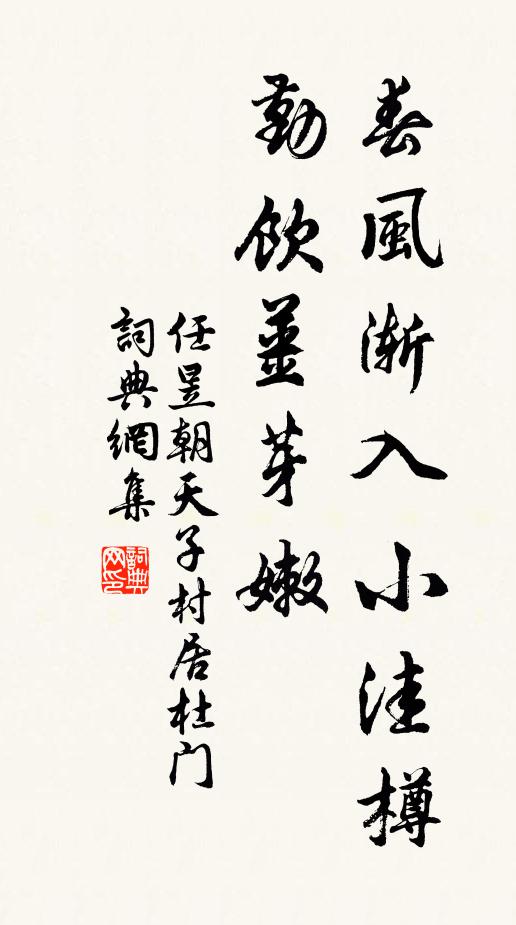 春風漸入小洼樽
勤飲薑芽嫩
任昱朝天子村居杜门
詞典網集
詞典网印